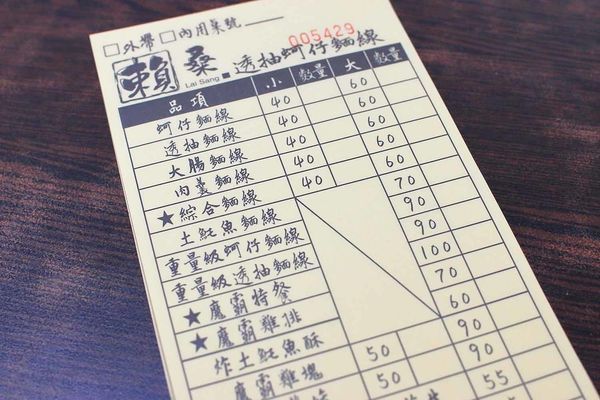 □外帶 □內用桌號
005429
賴桑 透抽蚵仔麵線
Lai Sang
品項 小 數量 大 數量
蚵仔麵線 40 60
透抽麵線 40 60
大腸麵線 40 60
肉羹麵線 40 60
★綜合麵線 40 70
土魠魚麵線 90
重量級蚵仔麵線 90
重量級透抽麵線 100
★魔霸特餐 70
★魔霸雞排 60
炸土魠魚酥 50 90
魔霸雞塊 50 55